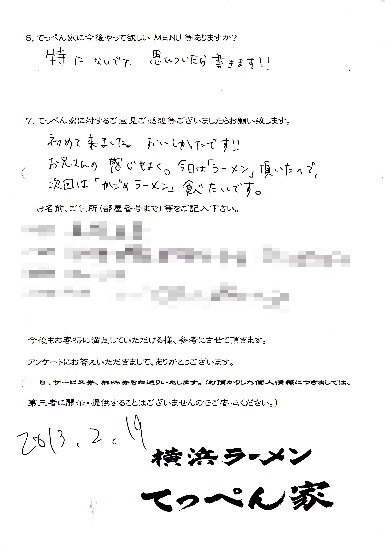 6. てっぺん家に今後やって欲しいMENU等ありますか？
特にないです。思いついたら書きます!!
7. てっぺん家に対するご意見ご感想等ございましたらお願い致します。
初めて来ました。おいしかったです!!
お兄さんの感じもよく。今日は「ラーメン」頂いたので、
次回は「かごめラーメン」食べたいです。
お名前、ご住所(部屋番号まで)等をご記入下さい。
今後もお客様に満足していただける様、参考にさせて頂きます。
アンケートにお答えいただきまして、ありがとうございます。
第三者に開示・提供することはございませんのでご安心ください。)
2013.2.19
横浜ラーメン
てっぺん家